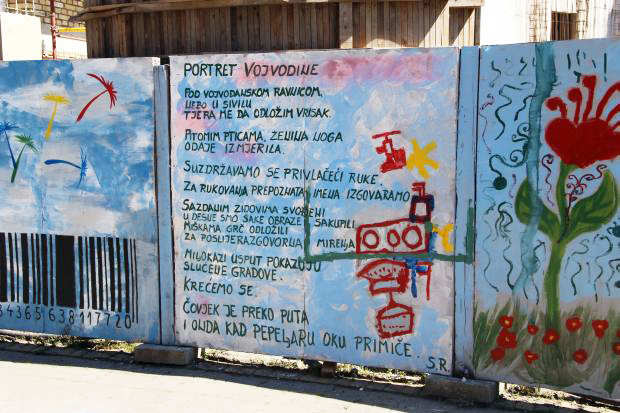 PORTRET VOJVODINE
POD VOJVOĐANSKOM RAVNICOM,
NEBO U SIVILU
TJERA ME DA ODLOŽIM VRISAK.
PITOMIM PTICAMA,
ODAJE IZMJERILA.
SUZDRŽAVAMO SE PRIVLAČEĆI RUKE.
ZA RUKOVANJA PREPOZNATA IMENA IZGOVARAMO
SAZDANIM ZIDOVIMA SVOĐENI
U DESNE SMO ŠAKE OBRAZE SAKUPILI
MIŠKAMA GRČ ODLOŽILI
ZA POSLIJERAZGOVORNA MIRENJA
MILOKAZI USPUT POKAZUJU
SLUĆENE GRADOVE.
KREĆEMO SE.
ČOVJEK JE PREKO PUTA
I ONDA KAD PEPELJARU OKU PRIMIČE.
S.R.
4365638117720